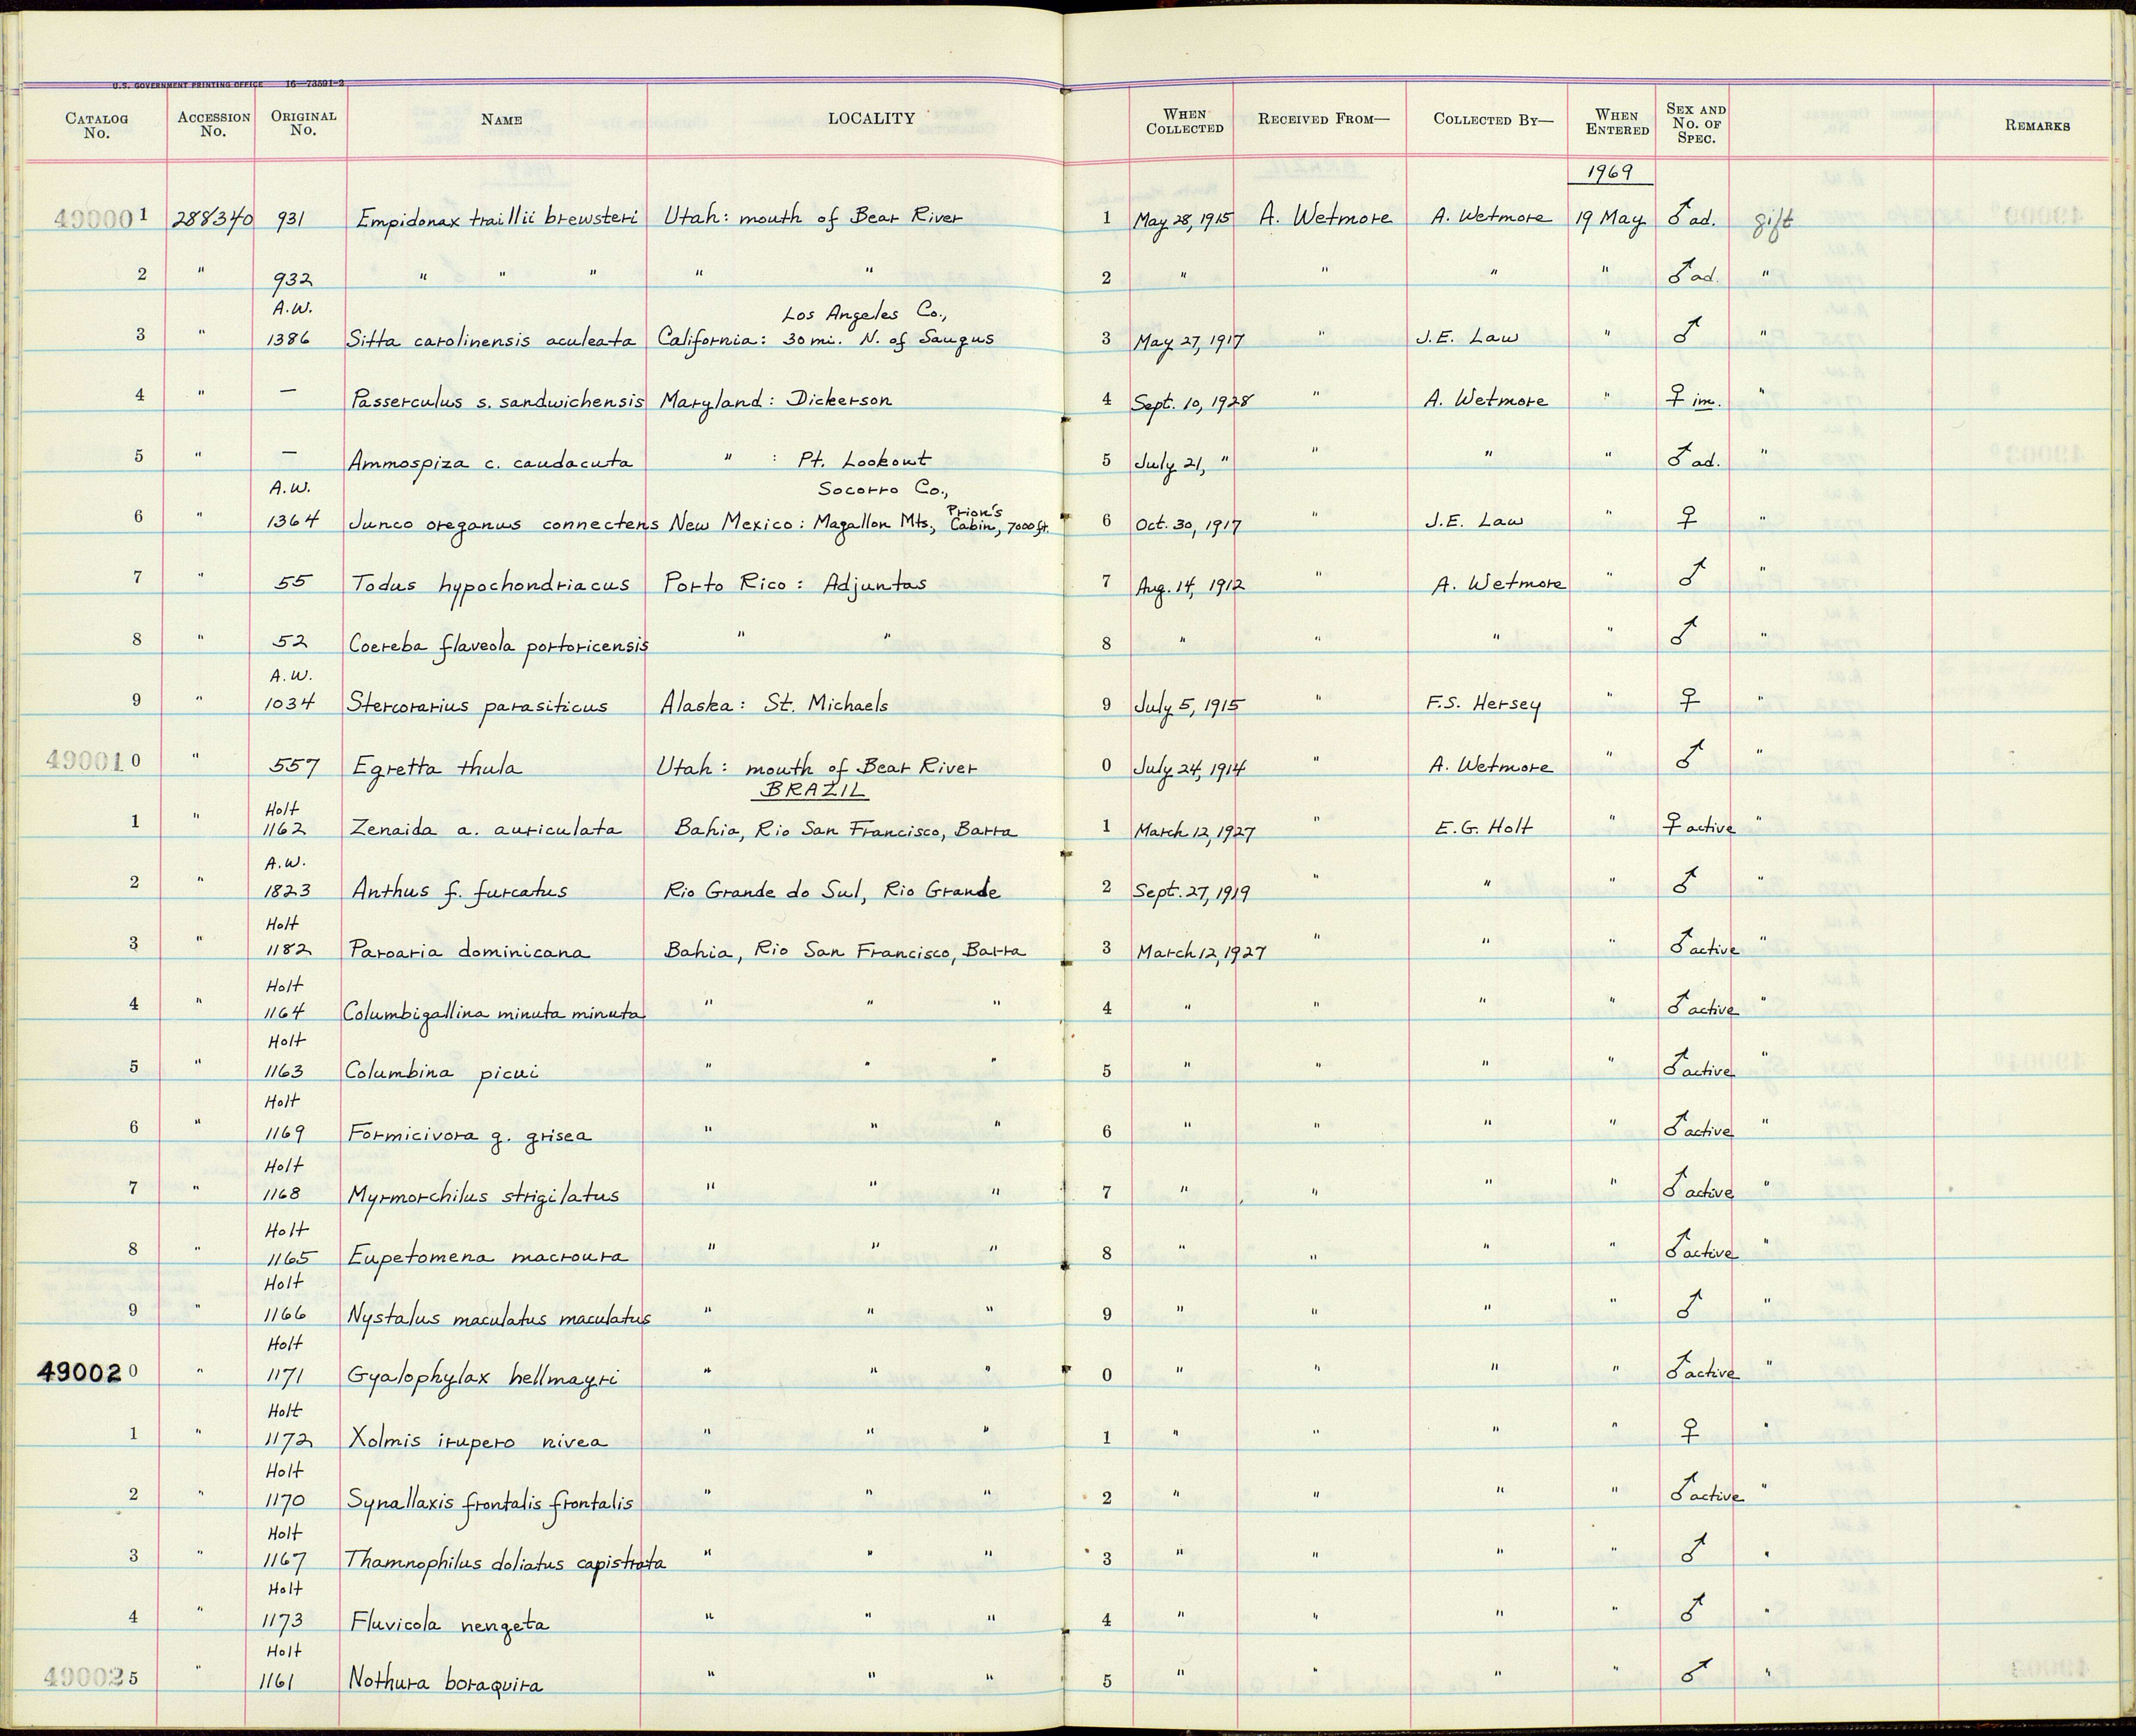 U.S. GOVERNMENT PRINTING OFFICE 16—73591-2
CATALOG No. ACCESSION No. ORIGINAL No. NAME LOCALITY WHEN COLLECTED RECEIVED FROM— COLLECTED BY— WHEN ENTERED SEX AND No. OF SPEC. REMARKS
1969
490001 288340 931 Empidonax traillii brewsteri Utah: mouth of Bear River 1 May 28, 1915 A. Wetmore A. Wetmore 19 May ♂ ad. gift
2 " 932 " " " " " 2 " " " " ♂ ad. "
A.W. Los Angeles Co.,
3 " 1386 Sitta carolinensis aculeata California: 30 mi. N. of Saugus 3 May 27, 1917 " J.E. Law " ♂ "
4 " — Passerculus s. sandwichensis Maryland: Dickerson 4 Sept. 10, 1928 " A. Wetmore " ♀ im. "
5 " — Ammospiza c. caudacuta " : Pt. Lookout 5 July 21, " " " " ♂ ad. "
A.W. Socorro Co.,
Prion's
6 " 1364 Junco oreganus connectens New Mexico: Magallon Mts., Cabin, 7000 ft. 6 Oct. 30, 1917 " J.E. Law " ♀ "
7 " 55 Todus hypochondriacus Porto Rico: Adjuntas 7 Aug. 14, 1912 " A. Wetmore " ♂ "
8 " 52 Coereba flaveola portoricensis " " 8 " " " " ♂ "
A.W.
9 " 1034 Stercorarius parasiticus Alaska: St. Michaels 9 July 5, 1915 " F.S. Hersey " ♀ "
490010 " 557 Egretta thula Utah: mouth of Bear River 0 July 24, 1914 " A. Wetmore " ♂ "
BRAZIL
Holt
1 " 1162 Zenaida a. auriculata Bahia, Rio San Francisco, Barra 1 March 12, 1927 " E.G. Holt " ♀ active "
A.W.
2 " 1823 Anthus f. furcatus Rio Grande do Sul, Rio Grande 2 Sept. 27, 1919 " " " ♂ "
Holt
3 " 1182 Paroaria dominicana Bahia, Rio San Francisco, Barra 3 March 12, 1927 " " " ♂ active "
Holt
4 " 1164 Columbigallina minuta minuta " " " 4 " " " " ♂ active "
Holt
5 " 1163 Columbina picui " " " 5 " " " " ♂ active "
Holt
6 " 1169 Formicivora g. grisea " " " 6 " " " " ♂ active "
Holt
7 " 1168 Myrmorchilus strigilatus " " " 7 " " " " ♂ active "
Holt
8 " 1165 Eupetomena macroura " " " 8 " " " " ♂ active "
Holt
9 " 1166 Nystalus maculatus maculatus " " " 9 " " " " ♂ "
Holt
490020 " 1171 Gyalophylax hellmayri " " " 0 " " " " ♂ active "
Holt
1 " 1172 Xolmis irupero nivea " " " 1 " " " " ♀ "
Holt
2 " 1170 Synallaxis frontalis frontalis " " " 2 " " " " ♂ active "
Holt
3 " 1167 Thamnophilus doliatus capistrata " " " 3 " " " " ♂ "
Holt
4 " 1173 Fluvicola nengeta " " " 4 " " " " ♂ "
Holt
490025 " 1161 Nothura boraquira " " " 5 " " " " ♂ "